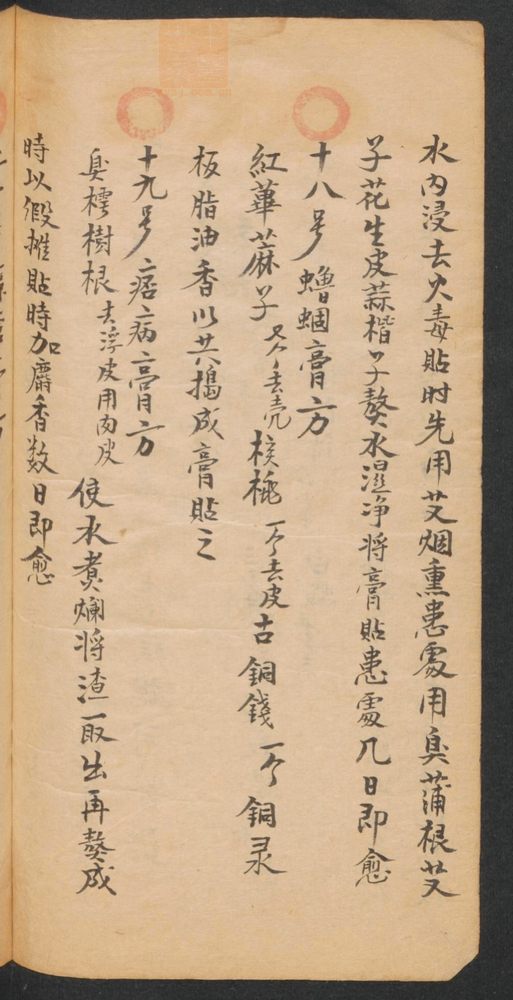 水內浸去火毒貼时先用艾烟熏患處用臭蒲根艾
子花生皮蒜楷子熬水湿净将膏貼患處几日即愈
十八号 蟾蜍膏方
紅華蔴子 又个去壳 核桃 一个去皮 古銅錢 一个 銅录
板脂油香以共搗成膏貼之
十九号 痞病膏方
臭樗樹根 去浮皮用肉皮 使水煮爛将渣一取出再熬成
時以假摊貼時加麝香数日即愈